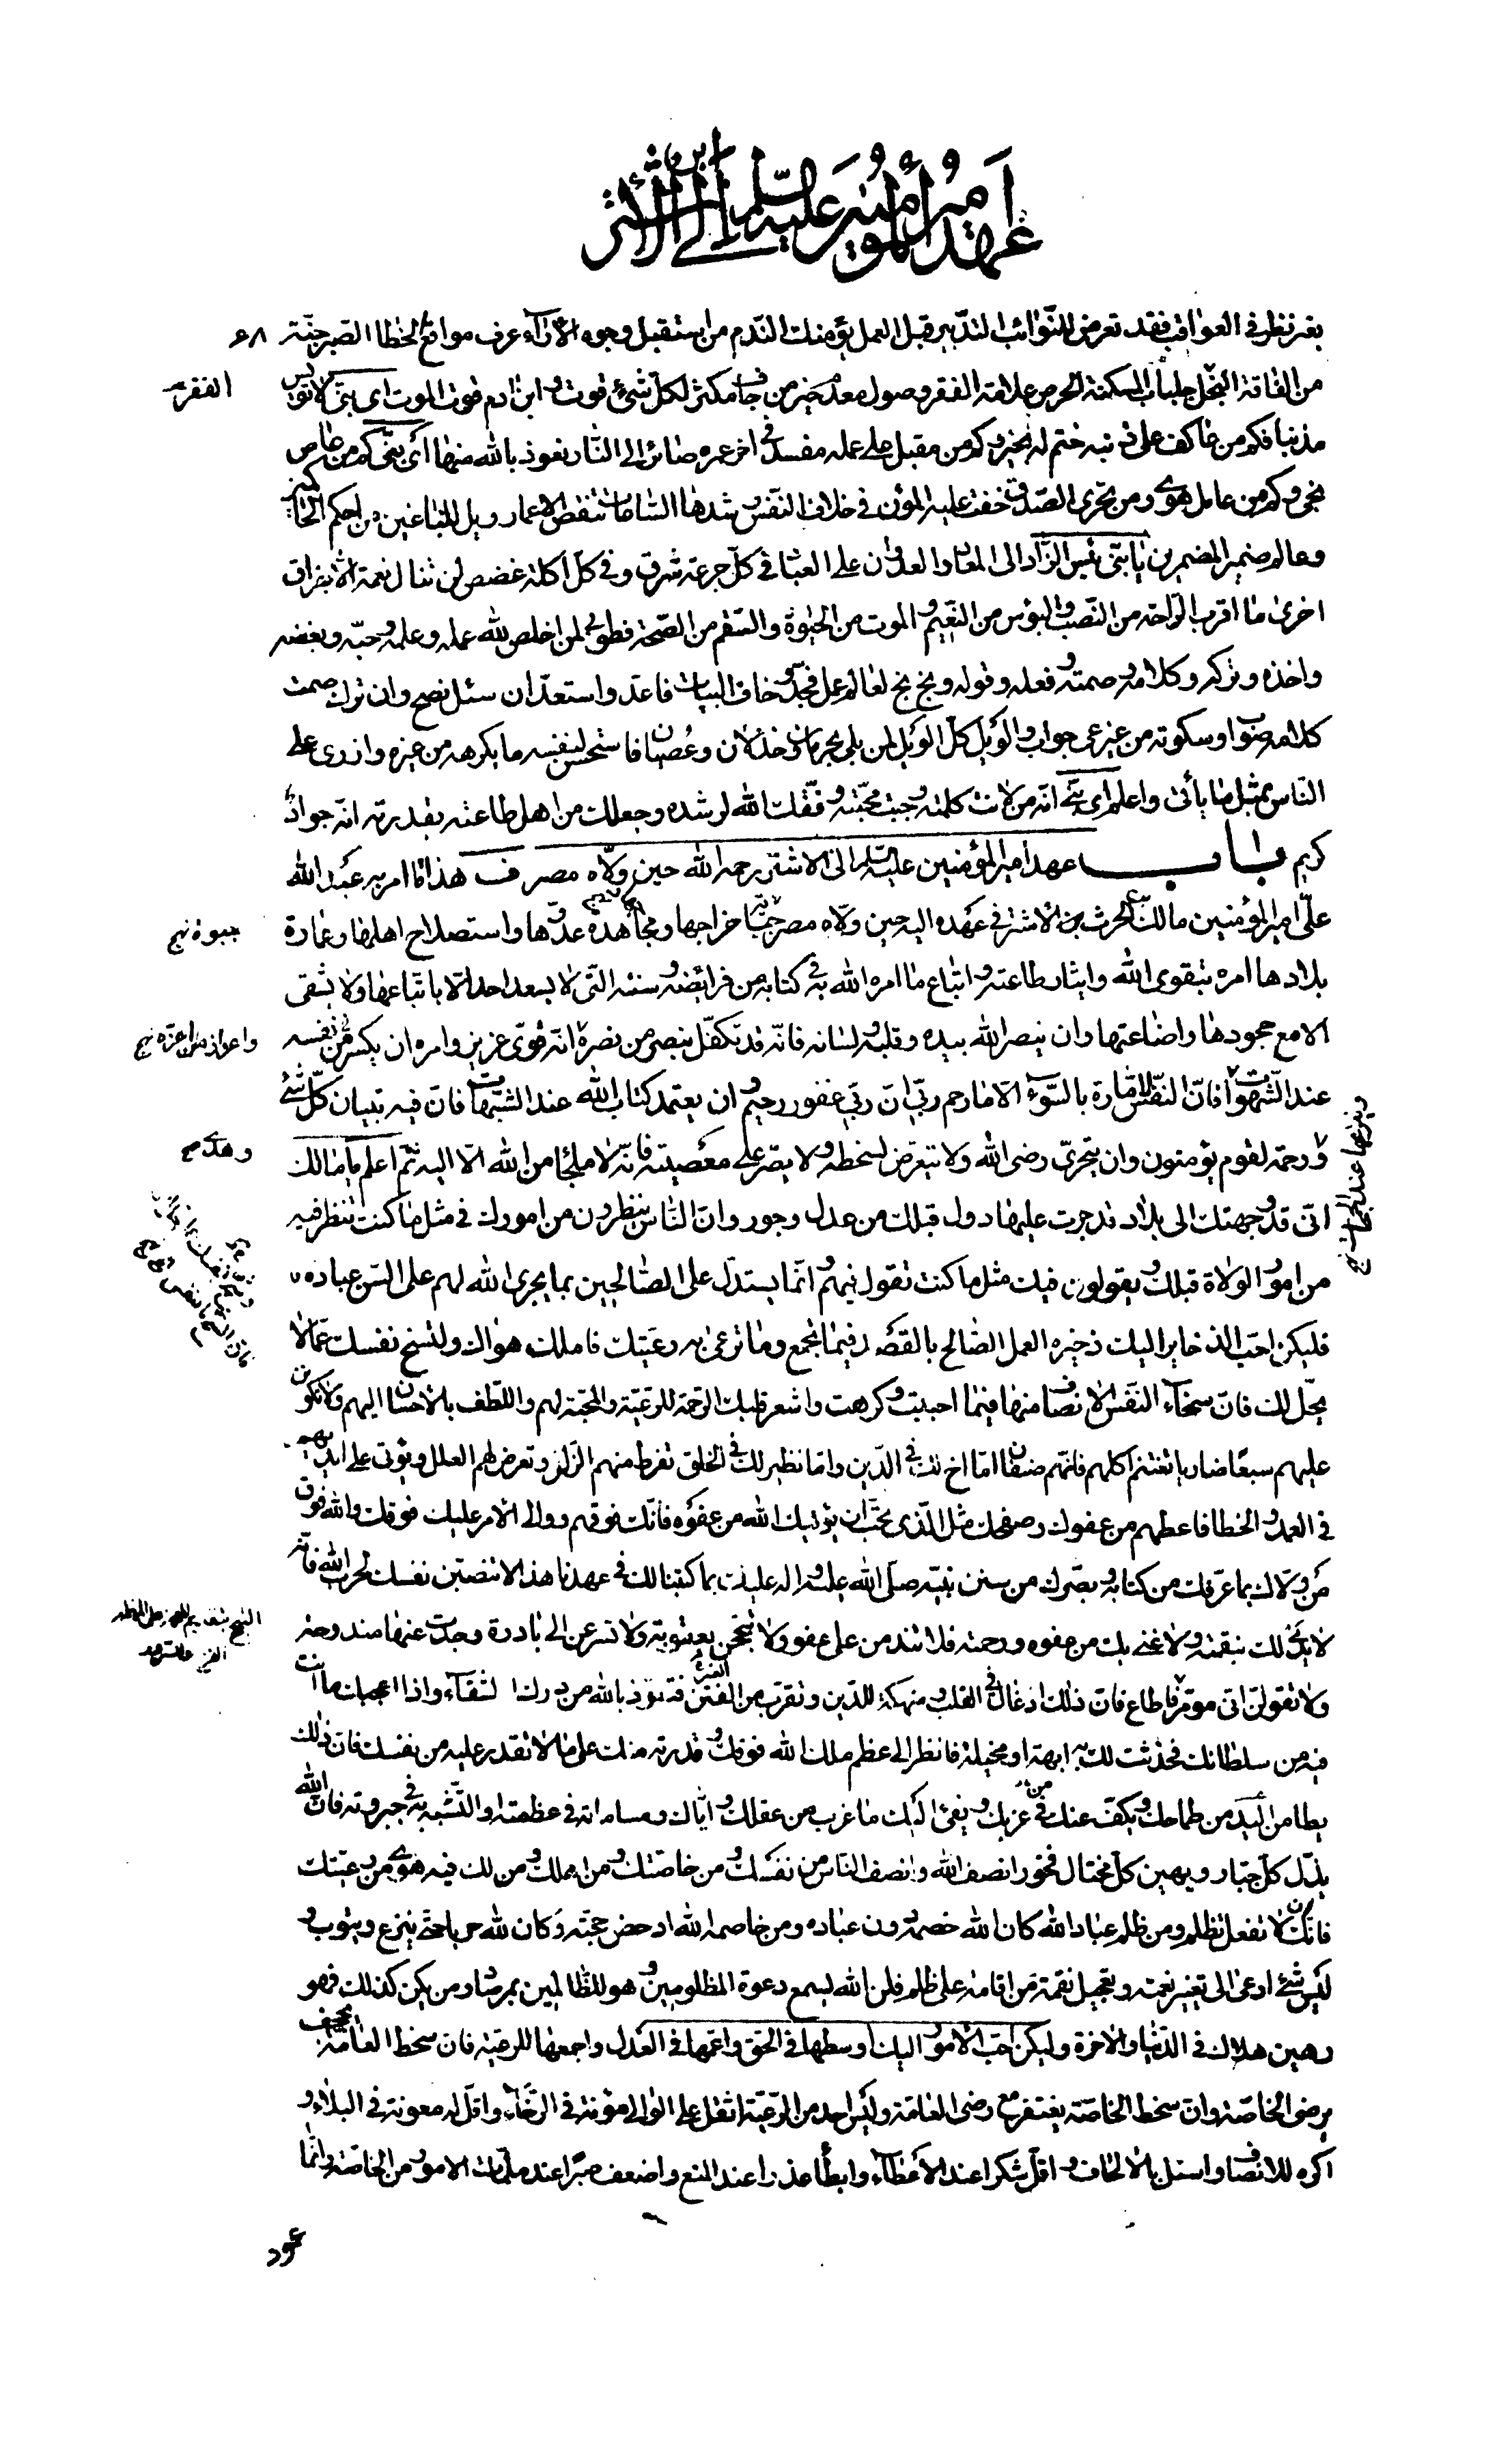 عهد امير المؤمنين عليه السلم الى الاشتر
بغير نظر فى العواقب فقد تعرض للنوائب التدبير قبل العمل يؤمنك الندم من استقبل وجوه الآراء عرف مواقع الخطا الصبر جنة
من الفاقة البخل جلباب المسكنة الحرص علامة الفقر وصول معدم خير من جاف مكثر لكل شئ قوت وابن ادم قوت الموت اى بنى لا تؤيس
الفقر
مذنبا فكم من عاكف على ذنبه ختم له بخير وكم من مقبل على عمله مفسد فى اخر عمره صائر الى النار نعوذ بالله منها اى بنى كم من عاص
نجى وكم من عامل هوى ومن تحرى الصدق خفت عليه المؤن فى خلاف النفس رشدها الساعات تنقص الاعمار ويل للباغين من احكم الحاكمين
وعالم ضمير المضمرين يا بنى بئس الزاد الى المعاد العدوان على العباد فى كل جرعة شرق وفى كل اكلة غصص لن تنال نعمة الا بفراق
اخرى ما اقرب الراحة من النصب والبؤس من النعيم والموت من الحيوة والسقم من الصحة فطوبى لمن اخلص لله عمله وعلمه وحبه وبغضه
واخذه وتركه وكلامه وصمته وفعله وقوله وبخ بخ لعالم عمل فجد وخاف البيات فاعد واستعد ان سئل نصح وان ترك صمت
كلامه صواب وسكوته من غير عى جواب والويل كل الويل لمن بلى بحرمان وخذلان وعصيان فاستحسن لنفسه ما يكرهه من غيره وازرى على
الناس بمثل ما يأتى واعلم اى بنى انه من لانت كلمته وجبت محبته وفقك الله لرشده وجعلك من اهل طاعته بقدرته انه جواد
كريم باب عهد امير المؤمنين عليه السلم الى الاشتر رحمه الله حين ولاه مصر ف هذا ما امر به عبد الله
على امير المؤمنين مالك بن الحرث الاشتر فى عهده اليه حين ولاه مصر جباية خراجها ومجاهدة عدوها واستصلاح اهلها وعمارة
جبوة نهج
بلادها امره بتقوى الله وايثار طاعته واتباع ما امره الله به فى كتابه من فرائضه وسننه التى لا يسعد احد الا باتباعها ولا يشقى
الا مع جحودها واضاعتها وان ينصر الله بيده وقلبه ولسانه فانه قد تكفل بنصر من نصره انه قوى عزيز وامره ان يكسر من نفسه
واعزاز من اعزه نهج
عند الشهوات فان النفس لامارة بالسوء الا ما رحم ربى ان ربى غفور رحيم وان يعتمد كتاب الله عند الشبهات فان فيه تبيان كل شئ
وينزعها عند الجمحات نهج
وهدى
ورحمة لقوم يؤمنون وان يتحرى رضى الله ولا يتعرض لسخطه ولا يصر على معصيته فانه لا ملجأ من الله الا اليه ثم اعلم يا مالك
انى قد وجهتك الى بلاد قد جرت عليها دول قبلك من عدل وجور وان الناس ينظرون من امورك فى مثل ما كنت تنظر فيه
من امور الولاة قبلك ويقولون فيك مثل ما كنت تقول فيهم وانما يستدل على الصالحين بما يجرى الله لهم على السن عباده
فليكن احب الذخاير اليك ذخيره العمل الصالح بالقصد فيما تجمع وما ترعى به رعيتك فاملك هواك ولتسخ نفسك عما لا
يحل لك فان سخاء النفس الانصاف منها فيما احببت وكرهت واشعر قلبك الرحمة للرعية والمحبة لهم واللطف بالاحسان اليهم ولا تكونن
عليهم سبعا ضاريا تغتنم اكلهم فانهم صنفان اما اخ لك فى الدين واما نظير لك فى الخلق تفرط منهم الزلل وتعرض لهم العلل ويؤتى على ايديهم
فى العمد والخطا فاعطهم من عفوك وصفحك مثل الذى تحب ان يؤتيك الله من عفوه فانك فوقهم ووالى الامر عليك فوقك والله فوق
من ولاك بما عرفك من كتابه وبصرك من سنن نبيه صلى الله عليه واله عليك بما كتبنا لك فى عهدنا هذا لا تنصبن نفسك لحرب الله فانه
لا يدى لك بنقمته ولا غنى بك من عفوه ورحمته فلا تندمن على عفو ولا تبجحن بعقوبة ولا تسرعن الى بادرة وجدت عنها مندوحة
ولا تقولن انى مؤمر فاطاع فان ذلك ادغال فى القلب ومنهكة للدين وتقرب من الفتن فتعوذ بالله من درك الشقاء واذا اعجبك ما انت
فيه من سلطانك فحدثت لك به ابهة او مخيلة فانظر الى عظم ملك الله فوقك وقدرته منك على ما لا تقدر عليه من نفسك فان ذلك
يطامن اليك من طماحك ويكف عنك من غربك ويفئ اليك ما عزب من عقلك واياك ومساماته فى عظمته او التشبه به فى جبروته فان الله
يذل كل جبار ويهين كل مختال فخور انصف الله وانصف الناس من نفسك ومن خاصتك ومن اهلك ومن لك فيه هوى من رعيتك
فانك ان لا تفعل تظلم ومن ظلم عباد الله كان الله خصمه دون عباده ومن خاصمه الله ادحض حجته وكان لله حربا حتى ينزع ويتوب و
ليس شئ ادعى الى تغيير نعمة وتعجيل نقمة من اقامة على ظلم فان الله يسمع دعوة المظلومين وهو للظالمين بمرصاد ومن يكن كذلك فهو
رهين هلاك فى الدنيا والاخرة وليكن احب الامور اليك اوسطها فى الحق واعمها فى العدل واجمعها للرعية فان سخط العامة يجحف
برضى الخاصة وان سخط الخاصة يغتفر مع رضى العامة وليس احد من الرعية اثقل على الوالى مؤنة فى الرخاء واقل له معونة فى البلاء و
اكره للانصاف واسئل بالالحاف واقل شكرا عند الاعطاء وابطأ عذرا عند المنع واضعف صبرا عند ملمات الامور من الخاصة وانما
عمود